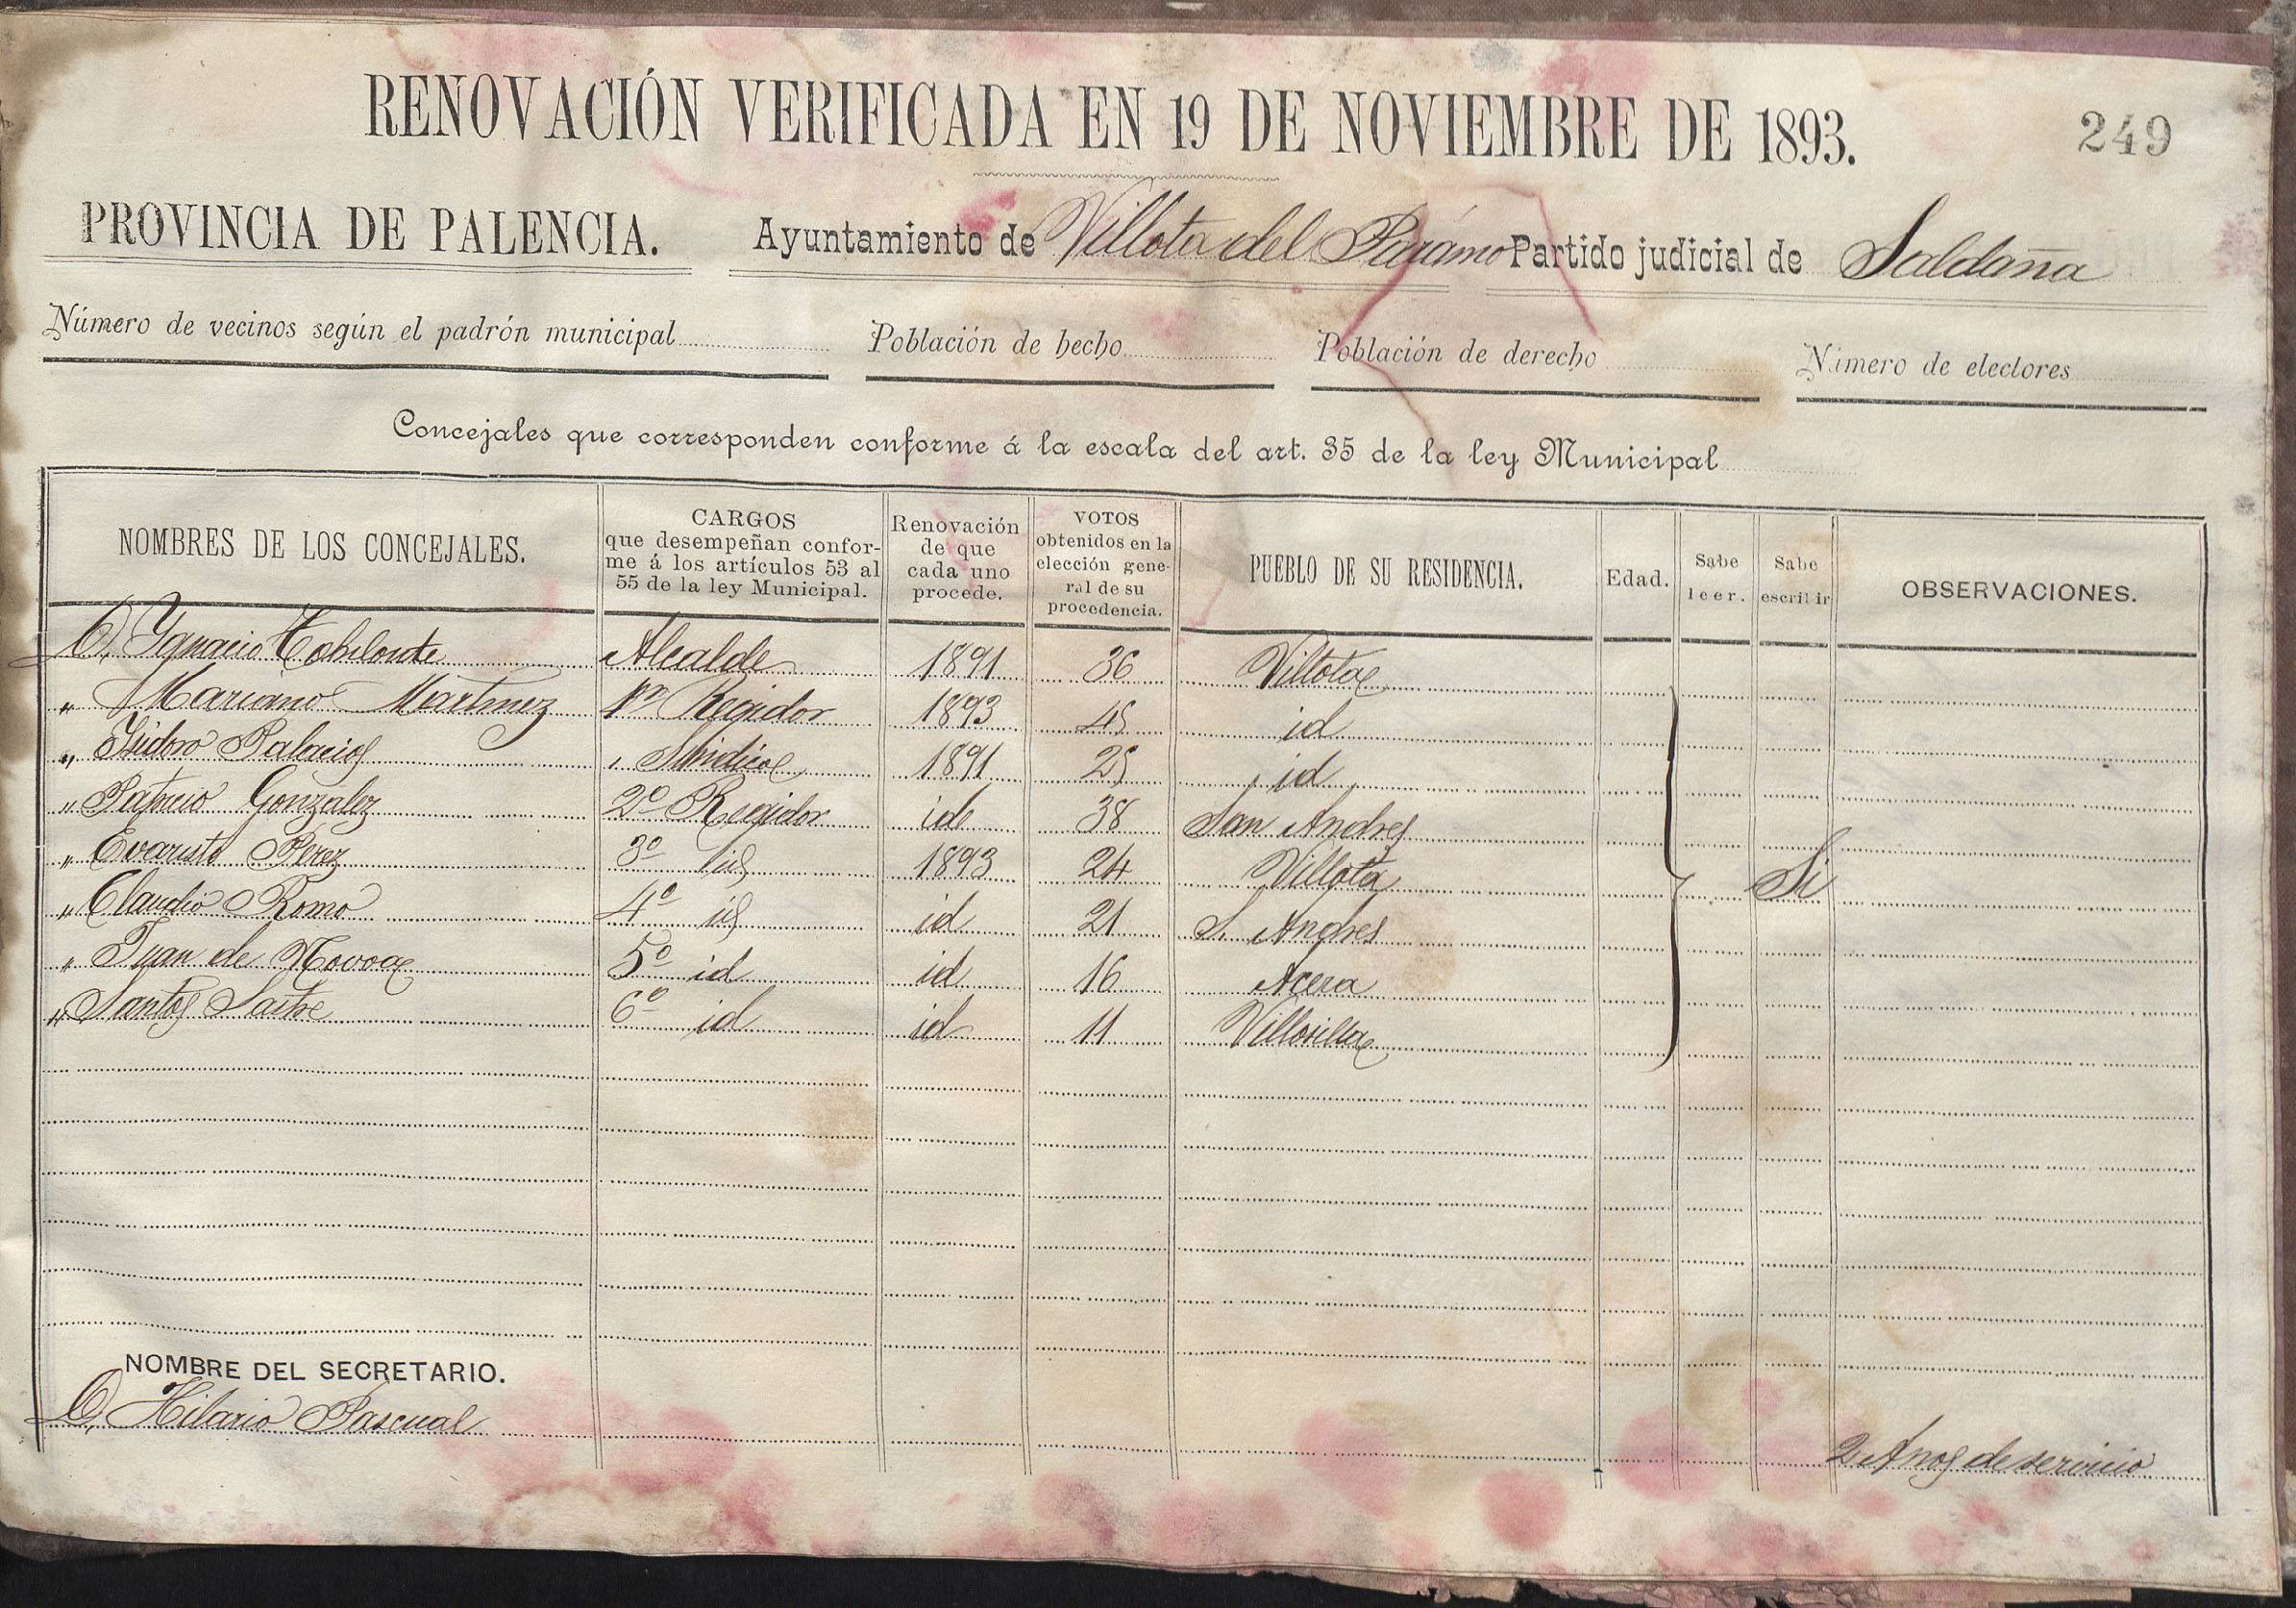 RENOVACIÓN VERIFICADA EN 19 DE NOVIEMBRE DE 1893.
249
PROVINCIA DE PALENCIA. Ayuntamiento de Villota del Páramo Partido judicial de Saldaña
Número de vecinos según el padrón municipal Población de hecho Población de derecho Número de electores
Concejales que corresponden conforme á la escala del art. 35 de la ley Municipal
NOMBRES DE LOS CONCEJALES. CARGOS que desempeñan conforme á los artículos 53 al 55 de la ley Municipal. Renovación de que cada uno procede. VOTOS obtenidos en la elección general de su procedencia. PUEBLO DE SU RESIDENCIA. Edad. Sabe leer. Sabe escribir OBSERVACIONES.
D. Ygnacio Alcalde 1891 36 Villota
" Mariano Martinez 1er Regidor 1893 45 id
" Isidoro Palacios " Sindico 1891 25 id
" Patricio Gonzalez 2º Regidor id 38 San Andres
" Evaristo Perez 3º id 1893 24 Villota
Si
" Claudio Romo 4º id id 21 S. Andres
" Juan de Novoa 5º id id 16 Acera
" Santos Sastre 6º id id 11 Villosilla
NOMBRE DEL SECRETARIO.
D. Hilario Pascual 2 Anos de servicio